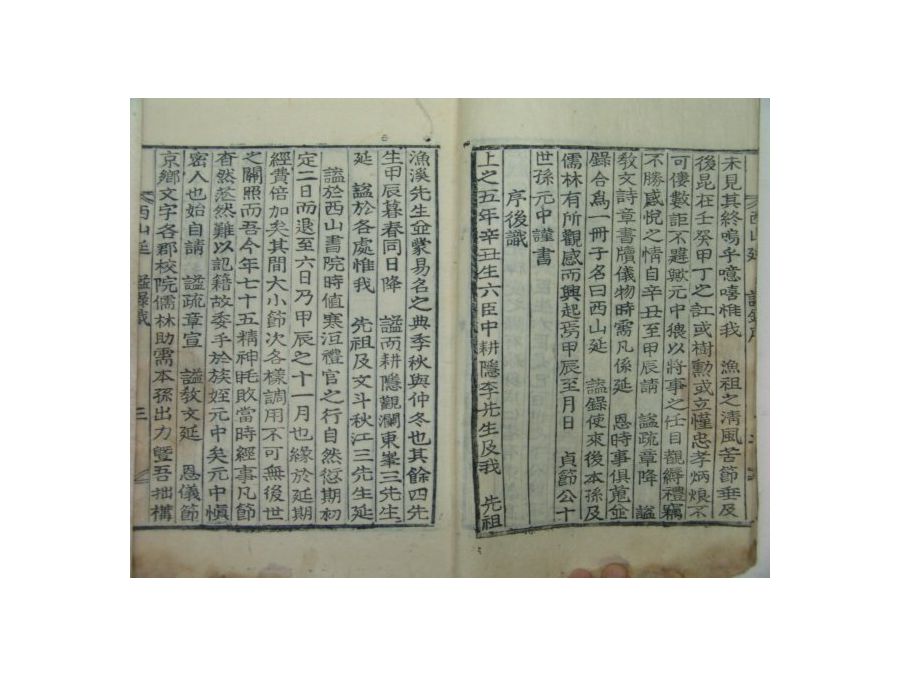 未見其終嗚乎噫嘻惟我 漁祖之淸風苦節垂及
後昆在壬癸甲丁之訌或樹勳或立慬忠孝炳烺不
可僂數詎不韙歟元中猥以將事之任目覩縟禮竊
不勝感悅之情自辛丑至甲辰請 諡疏章降 諡
敎文詩章書牘儀物時需凡係延 恩時事俱蒐並
錄合爲一冊子名曰西山延 諡錄使來後本孫及
儒林有所觀感而興起焉甲辰至月日 貞節公十
世孫元中謹書
序後識
上之五年辛丑生六臣中耕隱李先生及我 先祖
漁溪先生並蒙易名之典季秋與仲冬也其餘四先
生甲辰暮春同日降 諡而耕隱觀瀾東峯三先生
延 諡於各處惟我 先祖及文斗秋江三先生延
諡於西山書院時値寒沍禮官之行自然愆期初
定二日而退至六日乃甲辰之十一月也緣於延期
經費倍加矣其間大小節次各樣調用不可無後世
之關照而吾今年七十五精神眊敗當時經事凡節
杳然茫然難以記籍故委手於族姪元中矣元中愼
密人也始自請 諡疏章 諡敎文延 恩儀節
京鄕文字各郡校院儒林助需本孫出力曁吾拙構
西山延 諡錄識
三